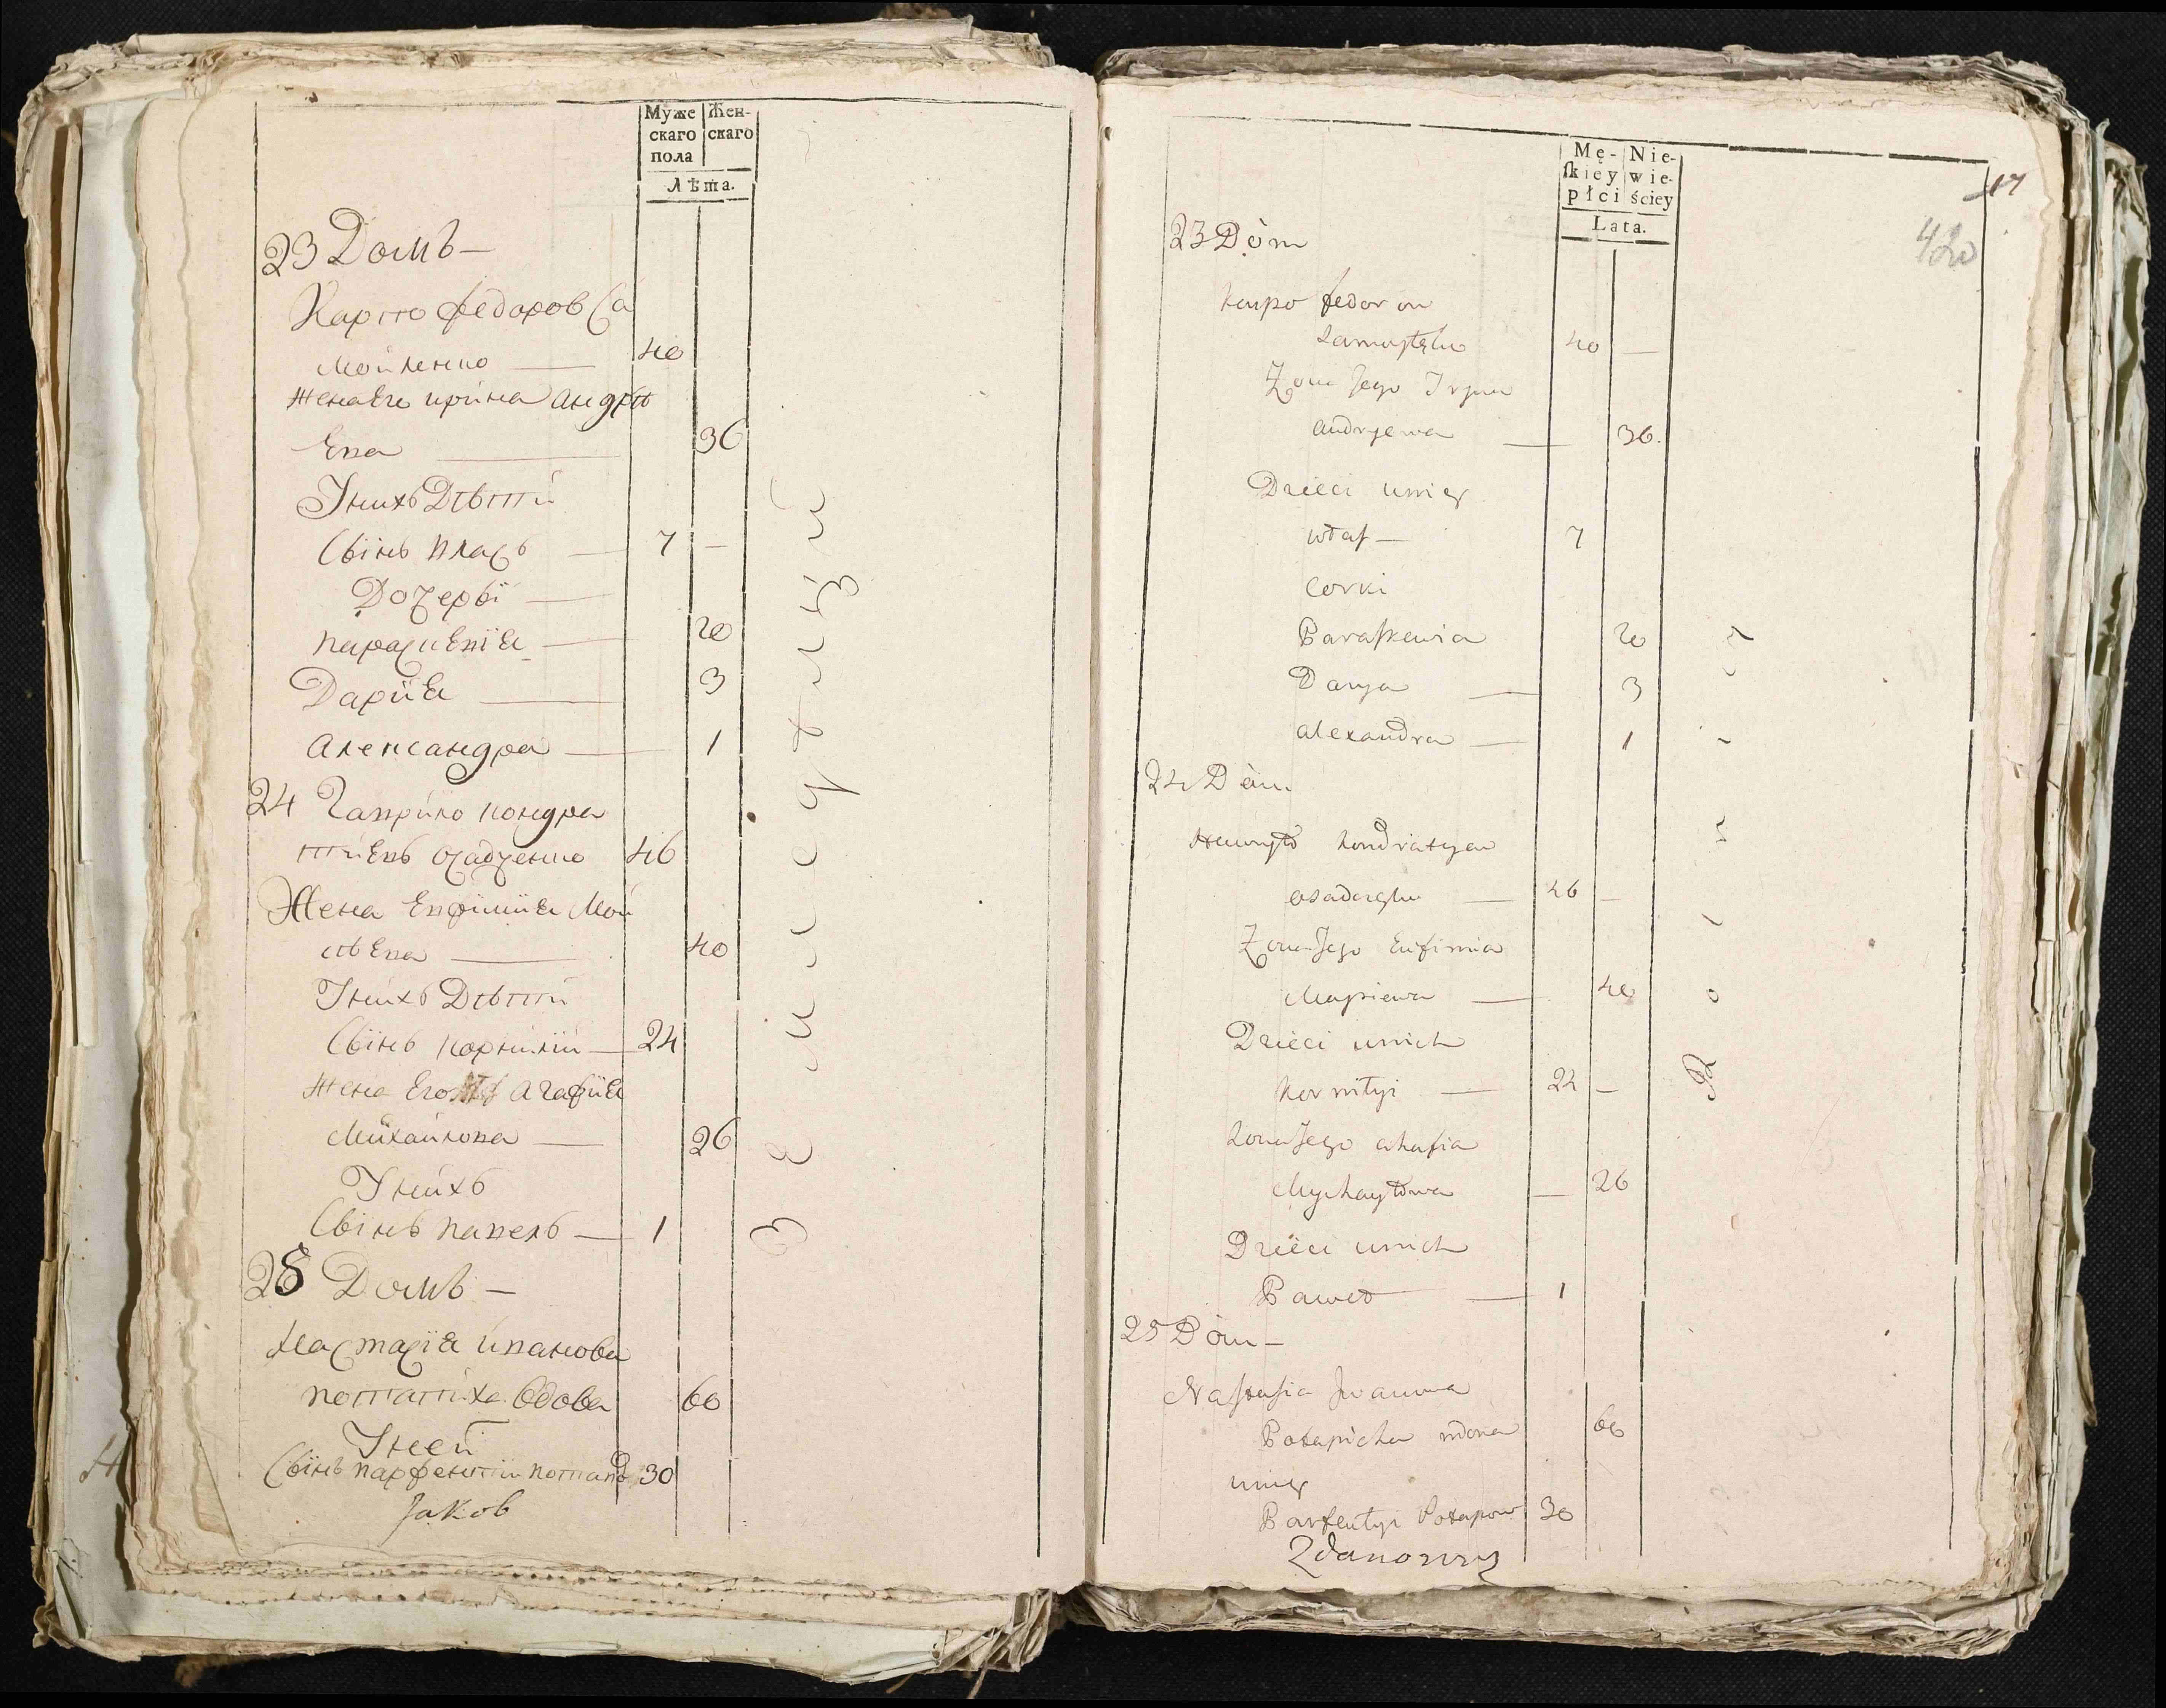 Муже
скаго
пола
Жен-
скаго
Лѣта.
23 Домъ —
Карпо Федоров Са
мойленко — 40
Жена Его ирина андрѣ
Ева — 36
У нихъ Дѣти
Сынъ власъ — 7 —
Дочеры —
параскевія — 20
Дарія — 3
александра — 1
24 Гаврило кондра
тиевъ осадченко 46
Жена Евфимия Мой
сѣева — 40
У нихъ Дѣти
Сынъ корнилий — 24
Жена Его агафия
Михайлова — 26
У нихъ
Сынъ павелъ — 1
25 Домъ —
Настасія иванова
потапиха вдова 60
У ней
Сынъ парфентий потапов 30
Jakob
Земледѣлци
Mę-
skiey
płci
Nie-
wie-
ściey
Lata.
17
420
23 Dòm
Karpo fedorow
Samoylęko 40 —
Zona Jego Iryna
andryewa — 36.
Dzieci unich
włas — 7
corki
Paraskewia 20
Darya — 3
alexandra — 1
24 Dòm
Hawryło kondratyew
osadczęko — 46 —
Zona Jego Eufimia
Moysiewa — 40
Dzieci unich
Kornityi — 24 —
Zona Jego ahafia
Mychayłowa — 26
Dzieci unich
Paweł — 1
25 Dòm —
Nastasia Iwanowa
Potapicha wdowa 60
uniey
Parfentyi Potapow 30
Zdanowicz
Rolnicy